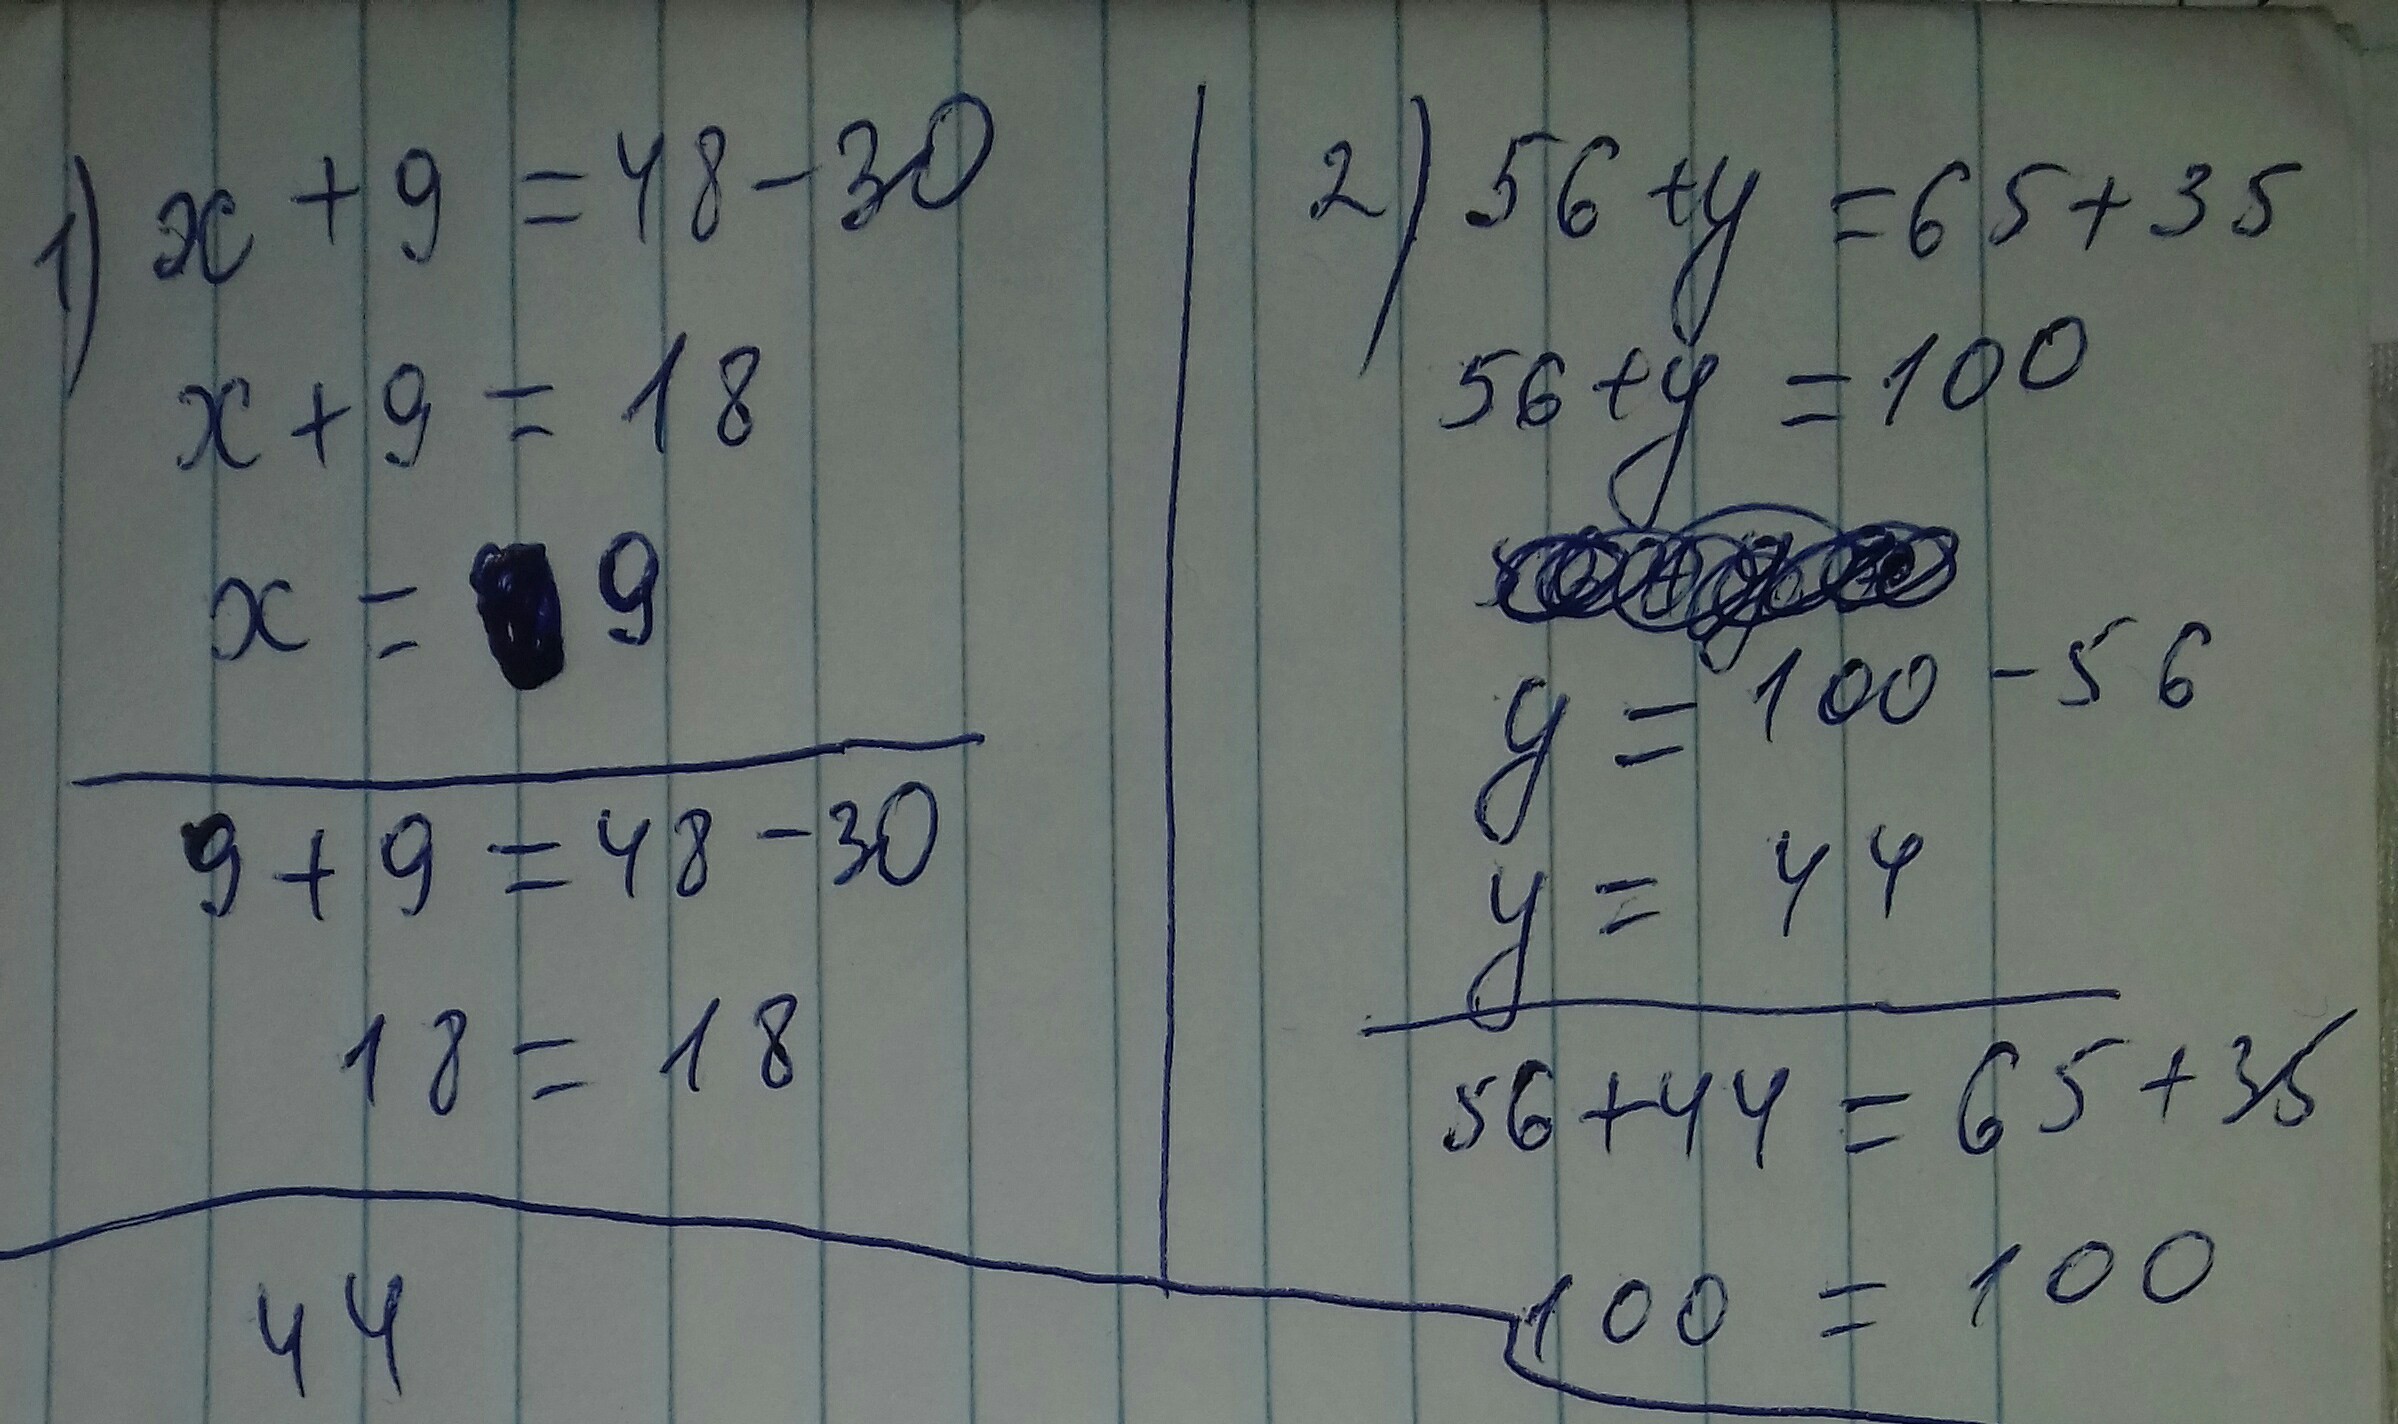 1) x + 9 = 48 - 30
x + 9 = 18
x = 9
9 + 9 = 48 - 30
18 = 18
44
2) 56 + y = 65 + 35
56 + y = 100
y = 100 - 56
y = 44
56 + 44 = 65 + 35
100 = 100